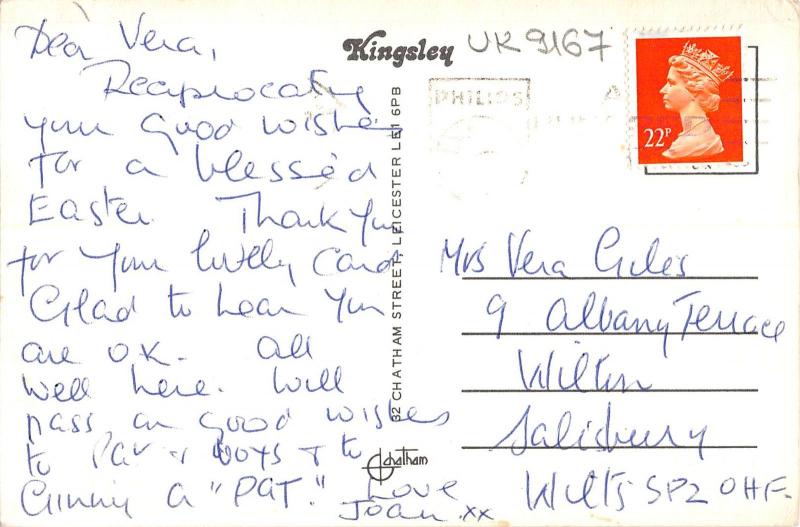 Dear Vera,
Reciprocating
your good wishes
for a blessed
Easter. Thank you
for your lovely card
Glad to hear you
are OK. All
well here. Will
pass on good wishes
to Pat & boys & to
Ginny a "PAT." Love
Joan xx
Kingsley
UK 9167
PHILIPS
22P
32 CHATHAM STREET, LEICESTER LE1 6PB
chatham
Mrs Vera Giles
9 Albany Terrace
Wilton
Salisbury
Wilts SP2 0HF.